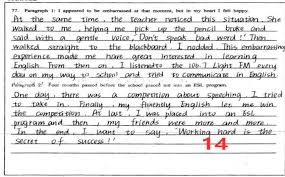 77. Paragraph 1: I appeared to be embarrassed at that moment, but in my heart I felt happy.
At the same time, the teacher noticed this situation. She
walked to me, helping me pick up the pencil broke and
said with a gentle voice, "Don't speak bad word!" Then
walked straight to the blackboard. I nodded. This embarrassing
experience made me have great interested in learning
English. From then on, I listened to the 100.7 Light FM every
day on my way to school and tried to communicate in English.
Paragraph 2: Four months passed before the school placed me into an ESL program.
One day, there was a competition about speaking. I tried
to take in. Finally, my fluently English let me win
the competition. At last, I was placed into an ESL
program and then, my friends were more and more.
In the end, I want to say, "Working hard is the
secret of success!"
14